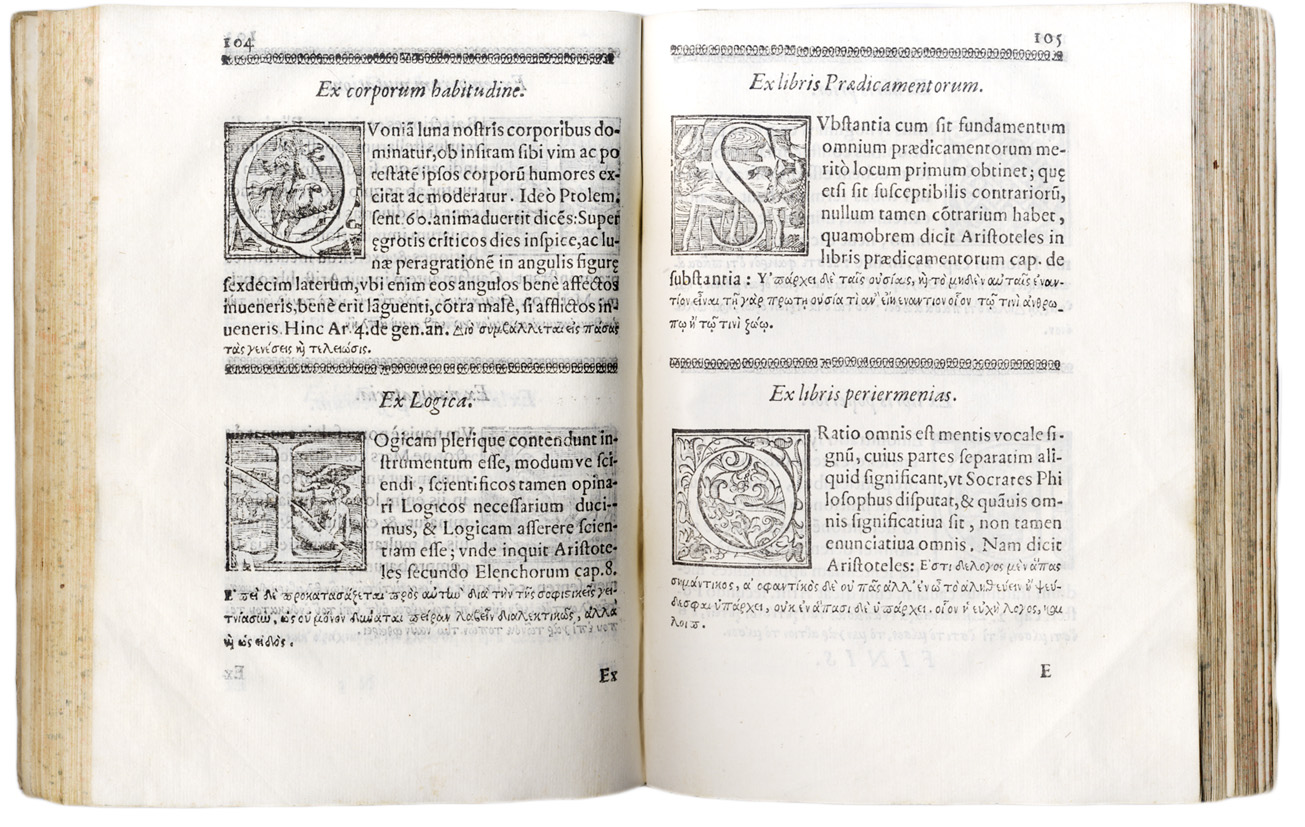 104
Ex corporum habitudine.
QVoniã luna nostris corporibus do-
minatur, ob insitam sibi vim ac po
testatẽ ipsos corporũ humores ex-
citat ac moderatur. Ideò Ptolem.
sent. 60. animaduertit dicẽs: Super
ęgrotis criticos dies inspice, ac lu-
næ peragrationẽ in angulis figurę
sexdecim laterum, vbi enim eos angulos benè affectos
inueneris, benè erit lãguenti, cõtra malè, si afflictos in-
ueneris. Hinc Ar. 4. de gen. an. Διὸ συμβάλλεται εἰς πάσας
τὰς γενέσεις καὶ τελειώσις.
Ex Logica.
LOgicam plerique contendunt in-
strumentum esse, modumve sci-
endi, scientificos tamen opina-
ri Logicos necessarium duci-
mus, & Logicam asserere scien-
tiam esse; vnde inquit Aristote-
les secundo Elenchorum cap. 8.
Ε'πεὶ δὲ προκατασάζεται πρὸς αὐτὼ διὰ τὴν τῆς σοφιστικῆς γει-
τνίασιν, ὡς οὐ μόνον δύναται πεῖραν λαβεῖν διαλεκτικῶς, ἀλλὰ
καὶ ὡς εἰδὼς.
Ex
105
Ex libris Prædicamentorum.
SVbstantia cum sit fundamentum
omnium prædicamentorum me-
ritò locum primum obtinet; quę
etsi sit susceptibilis contrariorũ,
nullum tamen cõtrarium habet,
quamobrem dicit Aristoteles in
libris prædicamentorum cap. de
substantia: Υ'πάρχει δὲ ταῖς οὐσίαις, καὶ τὸ μηδὲν αὐταῖς ἐναν-
τίον εἶναι τῇ γὰρ πρώτη οὐσία τί ἂν εἴη ἐναντίον οἷον τῷ τινὶ ἀνθρώ-
πῳ ἢ τῷ τινὶ ζώῳ.
Ex libris periermenias.
ORatio omnis est mentis vocale si-
gnũ, cuius partes separatim ali-
quid significant, vt Socrates Phi
losophus disputat, & quãuis om-
nis significatiua sit, non tamen
enunciatiua omnis. Nam dicit
Aristoteles: Ε'στι δὲ λόγος μὲν ἅπας
σημαντικὸς, ἀποφαντικὸς δὲ οὐ πᾶς ἀλλ' ἐν ᾧ τὸ ἀληθεύειν ἢ ψεύ-
δεσθαι ὑπάρχει, οὐκ ἐν ἅπασι δὲ ὑπάρχει. οἷον ἡ εὐχὴ λόγος,
E